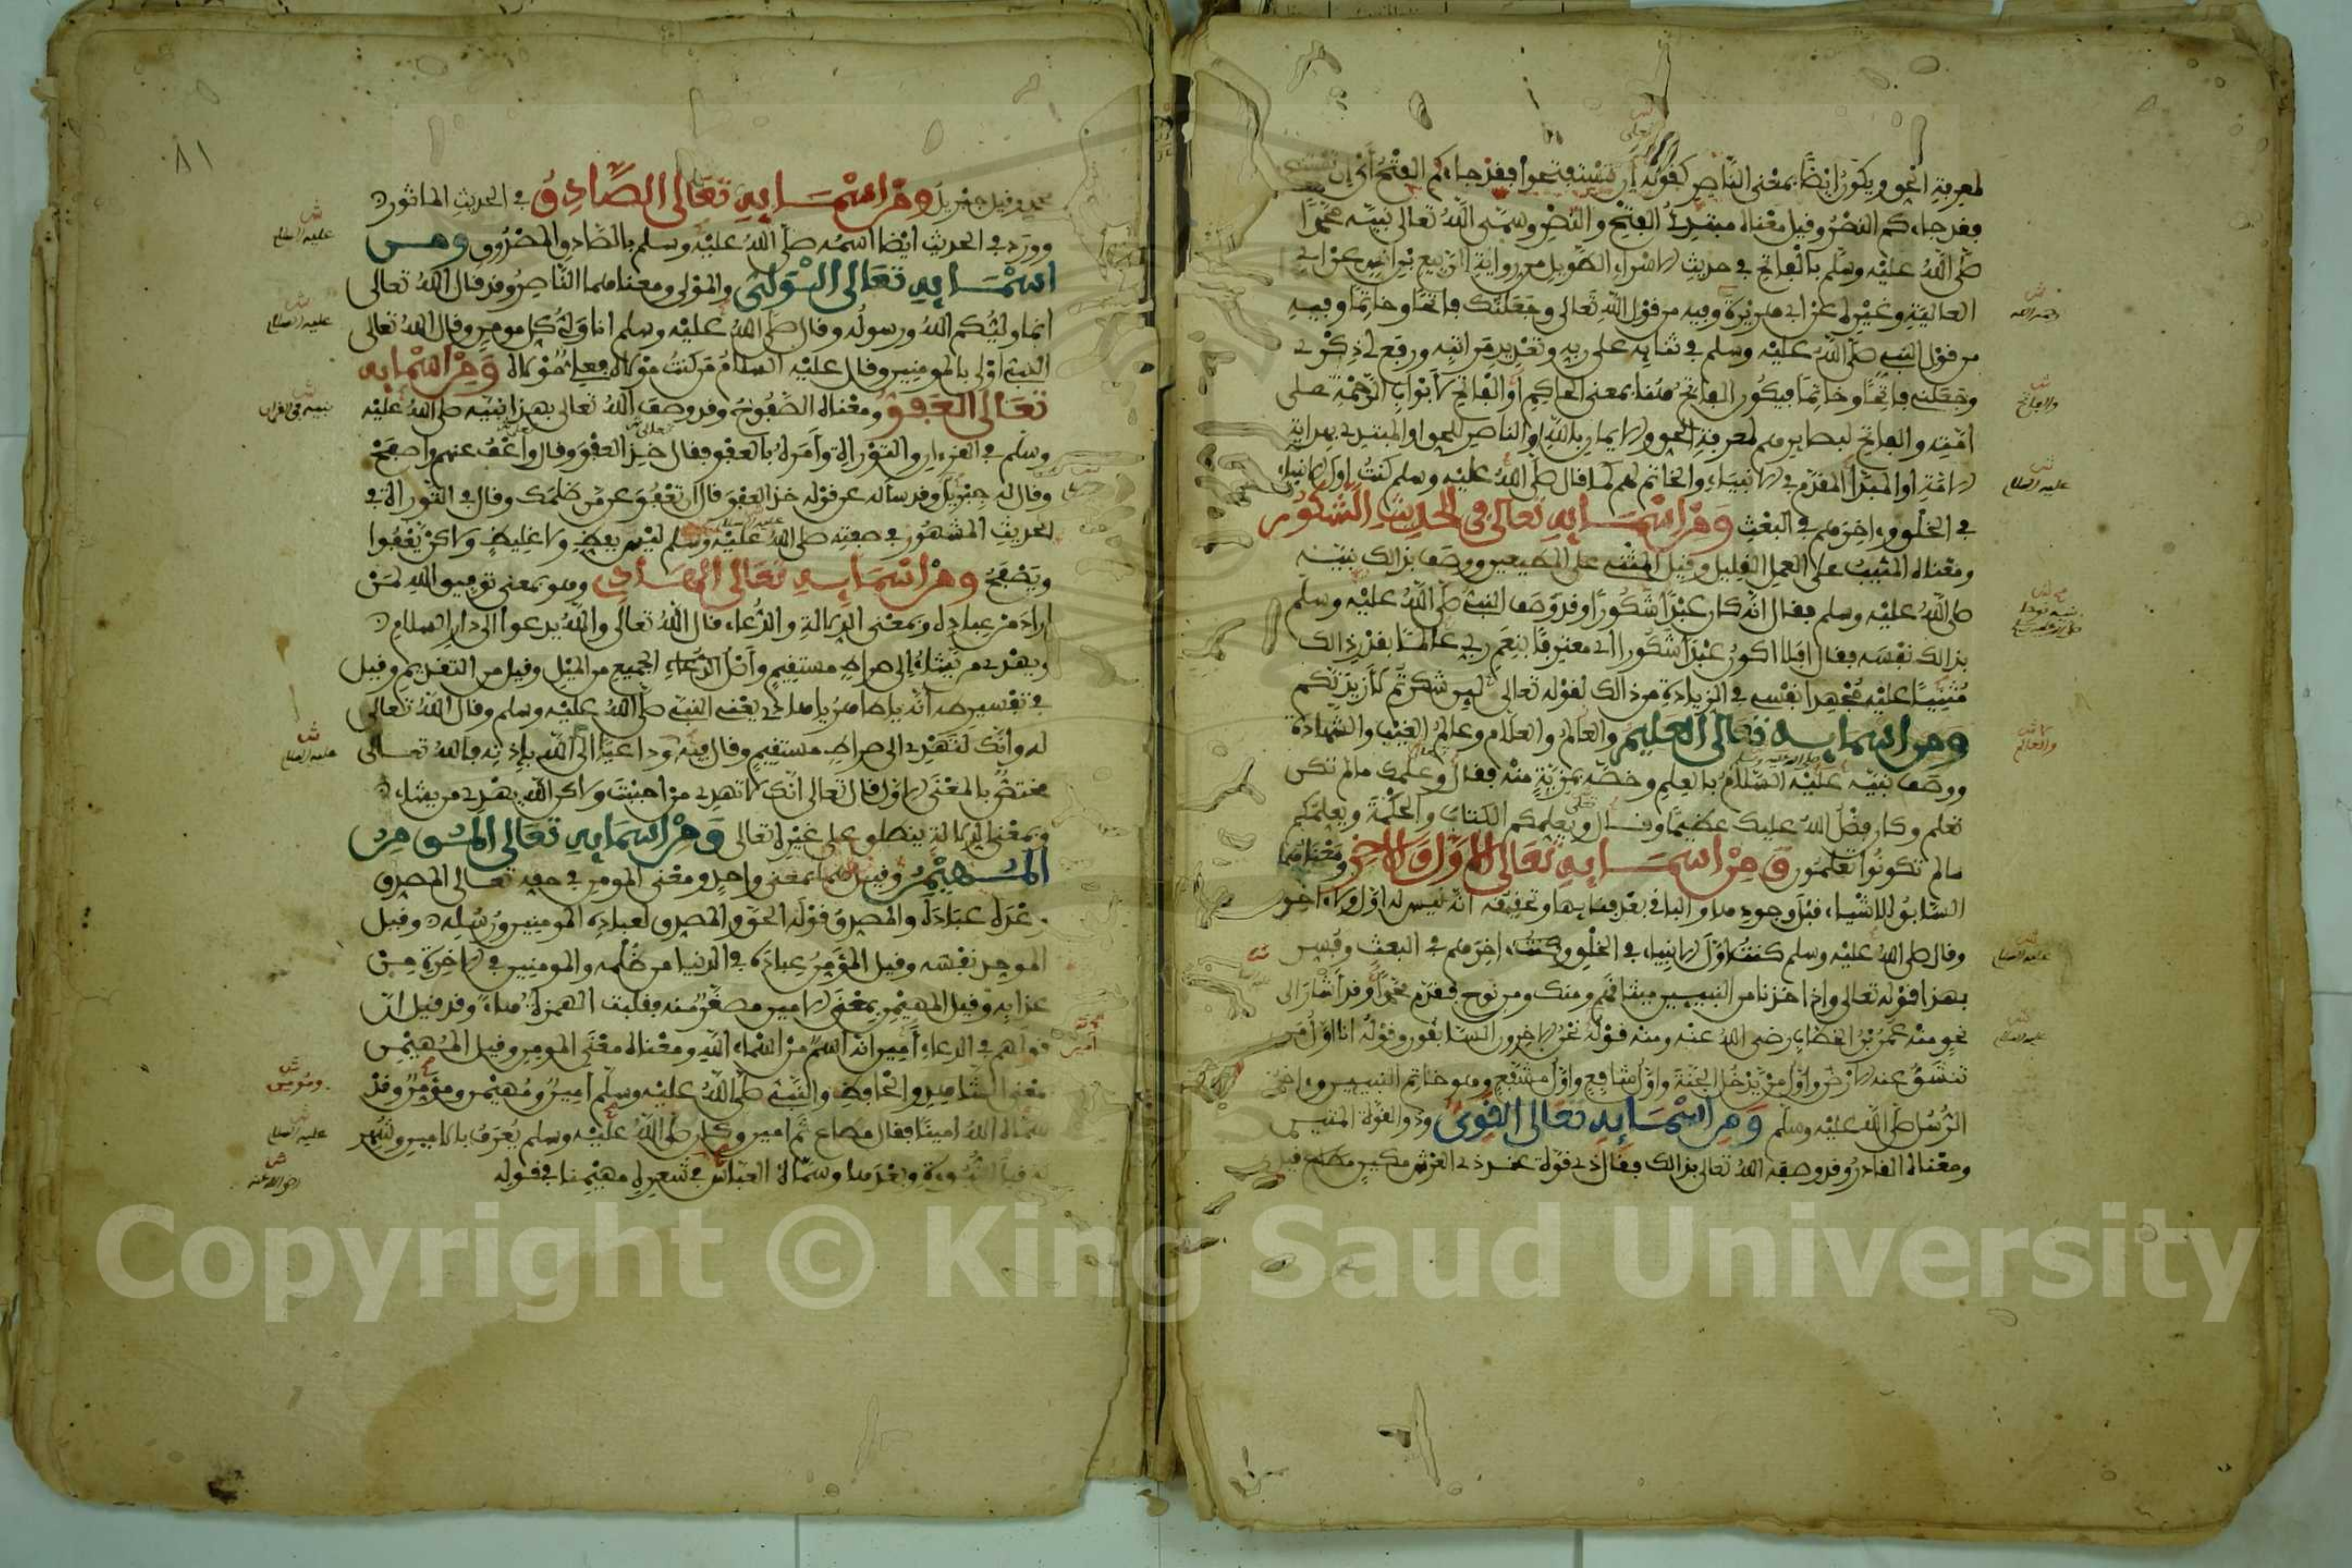 لمعرفة الحق ويكون ايضا بمعنى الناصر كقوله ان تستفتحوا فقد جاءكم الفتح اي ان
فقد جاءكم النصر وقيل معناه مبتدئ الفتح والنصر وسمى الله تعالى نبيه محمدا
صلى الله عليه وسلم بالفاتح في حديث الاسراء الطويل من رواية الربيع بن انس عن ابي
العالية وغيره عن ابي هريرة وفيه من قول الله تعالى وجعلتك فاتحا وخاتما وفيه
من قول النبي صلى الله عليه وسلم في ثنايه على ربه وتعديد مراتبه ورفع لي ذكري
وجعلني فاتحا وخاتما فيكون الفاتح هنا بمعنى الحاكم او الفاتح لابواب الرحمة على
امته والفاتح لبصايرهم لمعرفة الحق والايمان بالله او الناصر للحق او المبتدي بهداية
الامة او المبدا المقدم في الانبياء والخاتم لهم كما قال صلى الله عليه وسلم كنت اول الانبياء
في الخلق واخرهم في البعث ومن اسمايه تعالى في الحديث الشكور
ومعناه المثيب على العمل القليل وقيل المثني على المطيعين ووصف بذالك نبيه
صلى الله عليه وسلم فقال انه كان عبدا شكورا وقد وصف النبي صلى الله عليه وسلم
بذالك نفسه فقال افلا اكون عبدا شكورا اي معترفا بنعم ربي عالما بقدر ذالك
مثنيا عليه مجهدا نفسي في الزيادة من ذالك لقوله تعالى لين شكرتم لازيدنكم
ومن اسمايه تعالى العليم والعالم والعلام وعالم الغيب والشهادة
ووصف نبيه عليه السلام بالعلم وخصه بمزية منه فقال وعلمك مالم تكن
تعلم وكان فضل الله عليك عظيما وقال ويعلمكم الكتاب والحكمة ويعلمكم
مالم تكونوا تعلمون ومن اسمايه تعالى الاول والاخر ومعناهما
السابق للاشياء قبل وجودها والباقي بعد فنايها وتحقيقه انه ليس له اول ولا اخر
وقال صلى الله عليه وسلم كنت اول الانبياء في الخلق وكنت اخرهم في البعث وفسر
بهذا قوله تعالى واذ اخذنا من النبيين ميثاقهم ومنك ومن نوح فقدم محمدا وقد اشار الى
نحو منه عمر بن الخطاب رضي الله عنه ومنه قوله نحن الاخرون السابقون وقوله انا اول من
تنشق عنه الارض واول من يدخل الجنة واول شافع واول مشفع وهو خاتم النبيين واخر
الرسل صلى الله عليه وسلم ومن اسمايه تعالى القوي وذو القوة المتين
ومعناه القادر وقد وصفه الله تعالى بذالك فقال ذي قوة عند ذي العرش مكين مطاع قيل
رحمه الله
والفاتح
عليه السلام
والعالم
عليه السلام
عليه السلام
٨١
محمد وقيل جبريل ومن اسمايه تعالى الصادق في الحديث الماثور
وورد في الحديث ايضا اسمه صلى الله عليه وسلم بالصادق المصدوق ومن
اسمايه تعالى الولي والمولى ومعناهما الناصر وقد قال الله تعالى
انما وليكم الله ورسوله وقال صلى الله عليه وسلم انا ولي كل مومن وقال الله تعالى
النبي اولى بالمومنين وقال عليه السلام من كنت مولاه فعلي مولاه ومن اسمايه
تعالى العفو ومعناه الصفوح وقد وصف الله تعالى بهذا نبيه صلى الله عليه
وسلم في القرءان والتوراة وامره بالعفو فقال خذ العفو وقال واعف عنهم واصفح
وقال له جبريل وقد ساله عن قوله خذ العفو قال ان تعفو عمن ظلمك وقال في التوراة في
الحديث المشهور في صفته صلى الله عليه وسلم ليس بفظ ولا غليظ ولاكن يعفوا
ويصفح ومن اسمايه تعالى الهادي وهو بمعنى توفيق الله لمن
اراد من عباده وبمعنى الدلالة والدعاء قال الله تعالى والله يدعوا الى دار السلام
ويهدي من يشاء الى صراط مستقيم واصل الجميع من الميل وقيل من التقديم وقيل
في تفسير طه انه يا طاهر يا هادي يعني النبي صلى الله عليه وسلم وقال الله تعالى
له وانك لتهدي الى صراط مستقيم وقال فيه وداعيا الى الله باذنه فالله تعالى
مختص بالمعنى الاول قال تعالى انك لا تهدي من احببت ولاكن الله يهدي من يشاء
وبمعنى الدلالة ينطلق على غيره تعالى ومن اسمايه تعالى المومن
المهيمن وقيل هما بمعنى واحد ومعنى المومن في حقه تعالى المصدق
وعده عباده والمصدق قوله الحق والمصدق لعباده المومنين ورسله وقيل
الموحد نفسه وقيل المومن عباده في الدنيا من ظلمه والمومنين في الاخرة من
عذابه وقيل المهيمن بمعنى الامين مصغر منه فقلبت الهمزة هاء وقد قيل ان
قولهم في الدعاء امين انه اسم من اسماء الله ومعناه معنى المومن وقيل المهيمن
بمعنى الشاهد والحافظ والنبي صلى الله عليه وسلم امين ومهيمن ومومن وقد
سماه الله امينا فقال مطاع ثم امين وكان صلى الله عليه وسلم يعرف بالامين وشهر
به قبل النبوءة وبعدها وسماه العباس في شعره مهيمنا في قوله
عليه السلام
عليه السلام
نبيه في القران
عليه السلام
امين
ومومن
عليه السلام
رضي الله عنه
Copyright © King Saud University